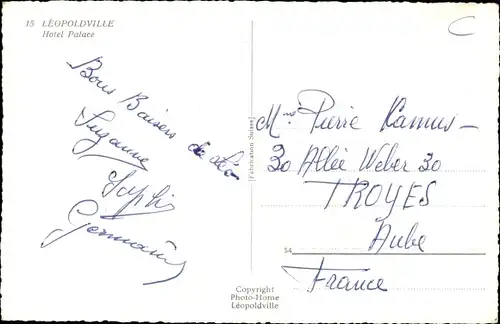 15 LÉOPOLDVILLE
Hotel Palace
Bons Baisers de Léo
Suzanne
Sophi
Germain
Fabrication Suisse
Mme Pierre Kamus
30 Allée Weber 30
TROYES
Aube
France
54
Copyright
Photo-Home
Léopoldville
C